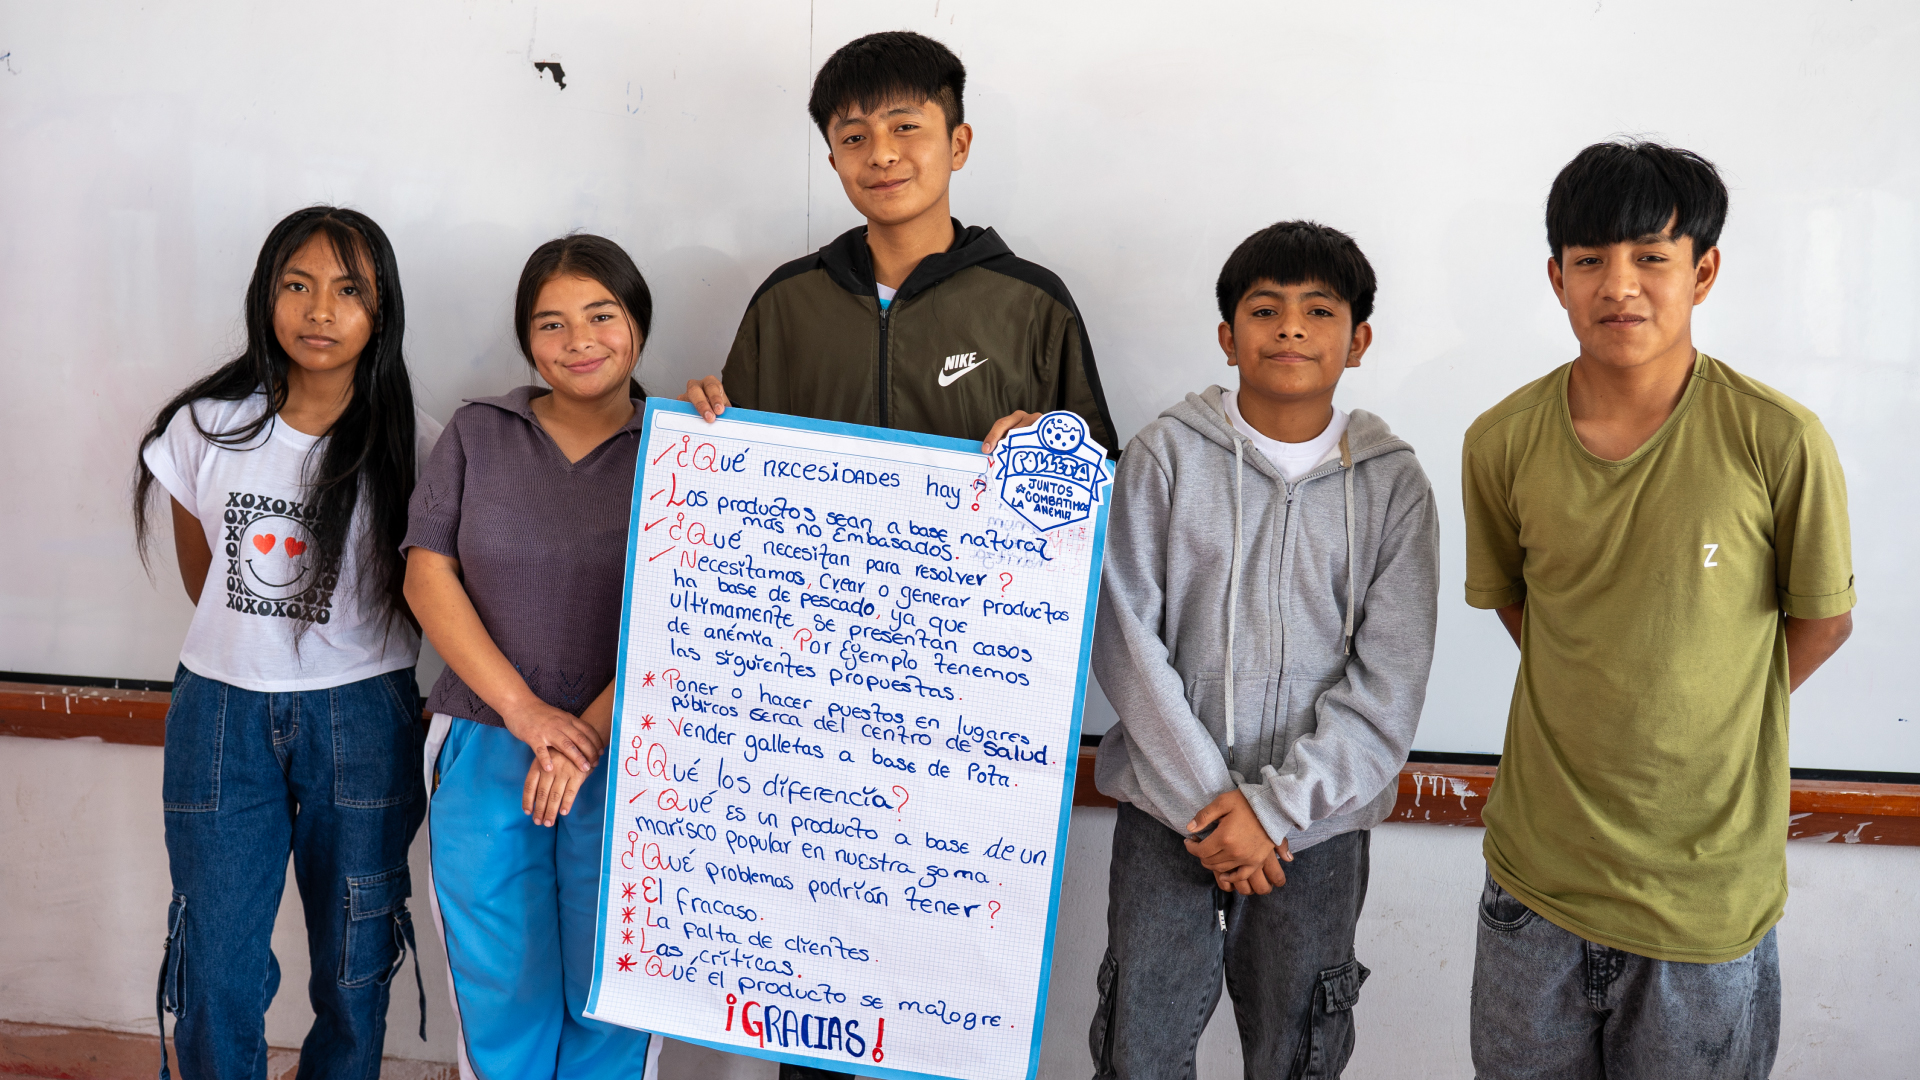 XOXOXOX
XOXOXOXO
XOXOXOXO
NIKE
POLLETA
JUNTOS
COMBATIMOS
LA ANEMIA
Z
¿Qué necesidades hay?
Los productos sean a base natural
mas no Embasados.
¿Qué necesitan para resolver?
Necesitamos, Crear o generar productos
ha base de pescado, ya que
ultimamente se presentan casos
de anémia. Por Ejemplo tenemos
las siguientes propuestas.
* Poner o hacer puestos en lugares
públicos serca del centro de salud.
* Vender galletas a base de Pota.
¿Qué los diferencia?
Qué es un producto a base de un
marisco popular en nuestra zoma.
¿Qué problemas podrián tener?
* El fracaso.
* La falta de clientes.
* Las críticas.
* Qué el producto se malogre.
¡GRACIAS!